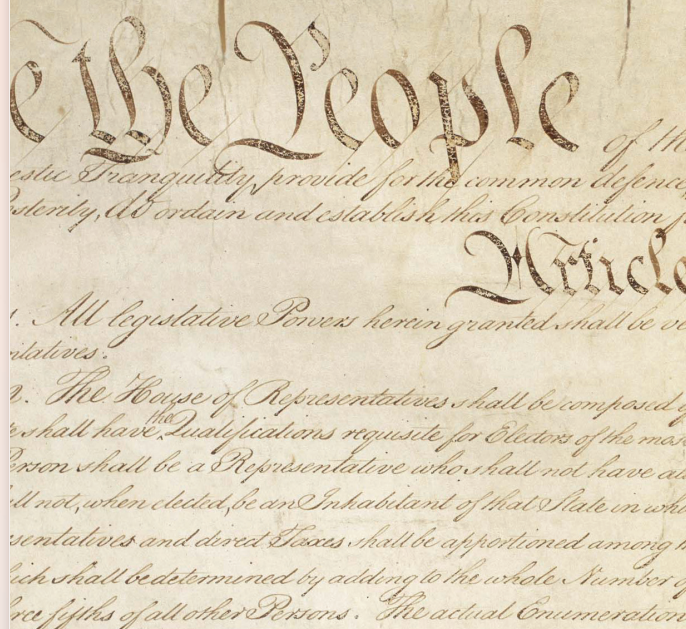 e the People of th
estic Tranquility, provide for the common defence,
osterity, do ordain and establish this Constitution f
Article
1. All legislative Powers herein granted shall be ve
ntatives.
n. The House of Representatives shall be composed o
e shall have the Qualifications requisite for Electors of the mos
Person shall be a Representative who shall not have at
ll not, when elected, be an Inhabitant of that State in whi
sentatives and direct Taxes shall be apportioned among t
ich shall be determined by adding to the whole Number of
ree fifths of all other Persons. The actual Enumeration